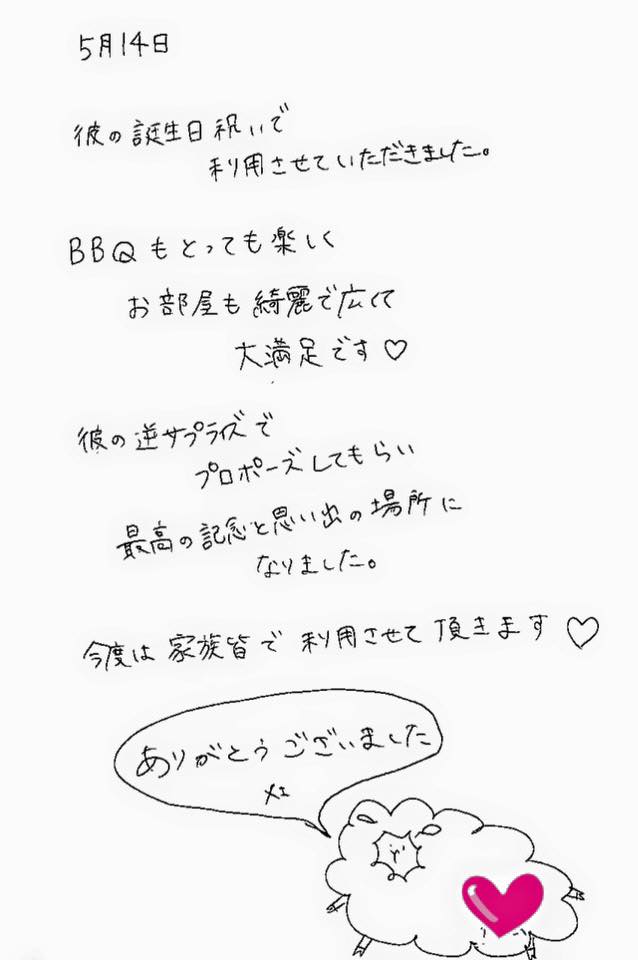 5月14日
彼の誕生日祝いで
利用させていただきました。
BBQもとっても楽しく
お部屋も綺麗で広くて
大満足です♡
彼の逆サプライズで
プロポーズしてもらい
最高の記念と思い出の場所に
なりました。
今度は家族皆で利用させて頂きます♡
ありがとうございました